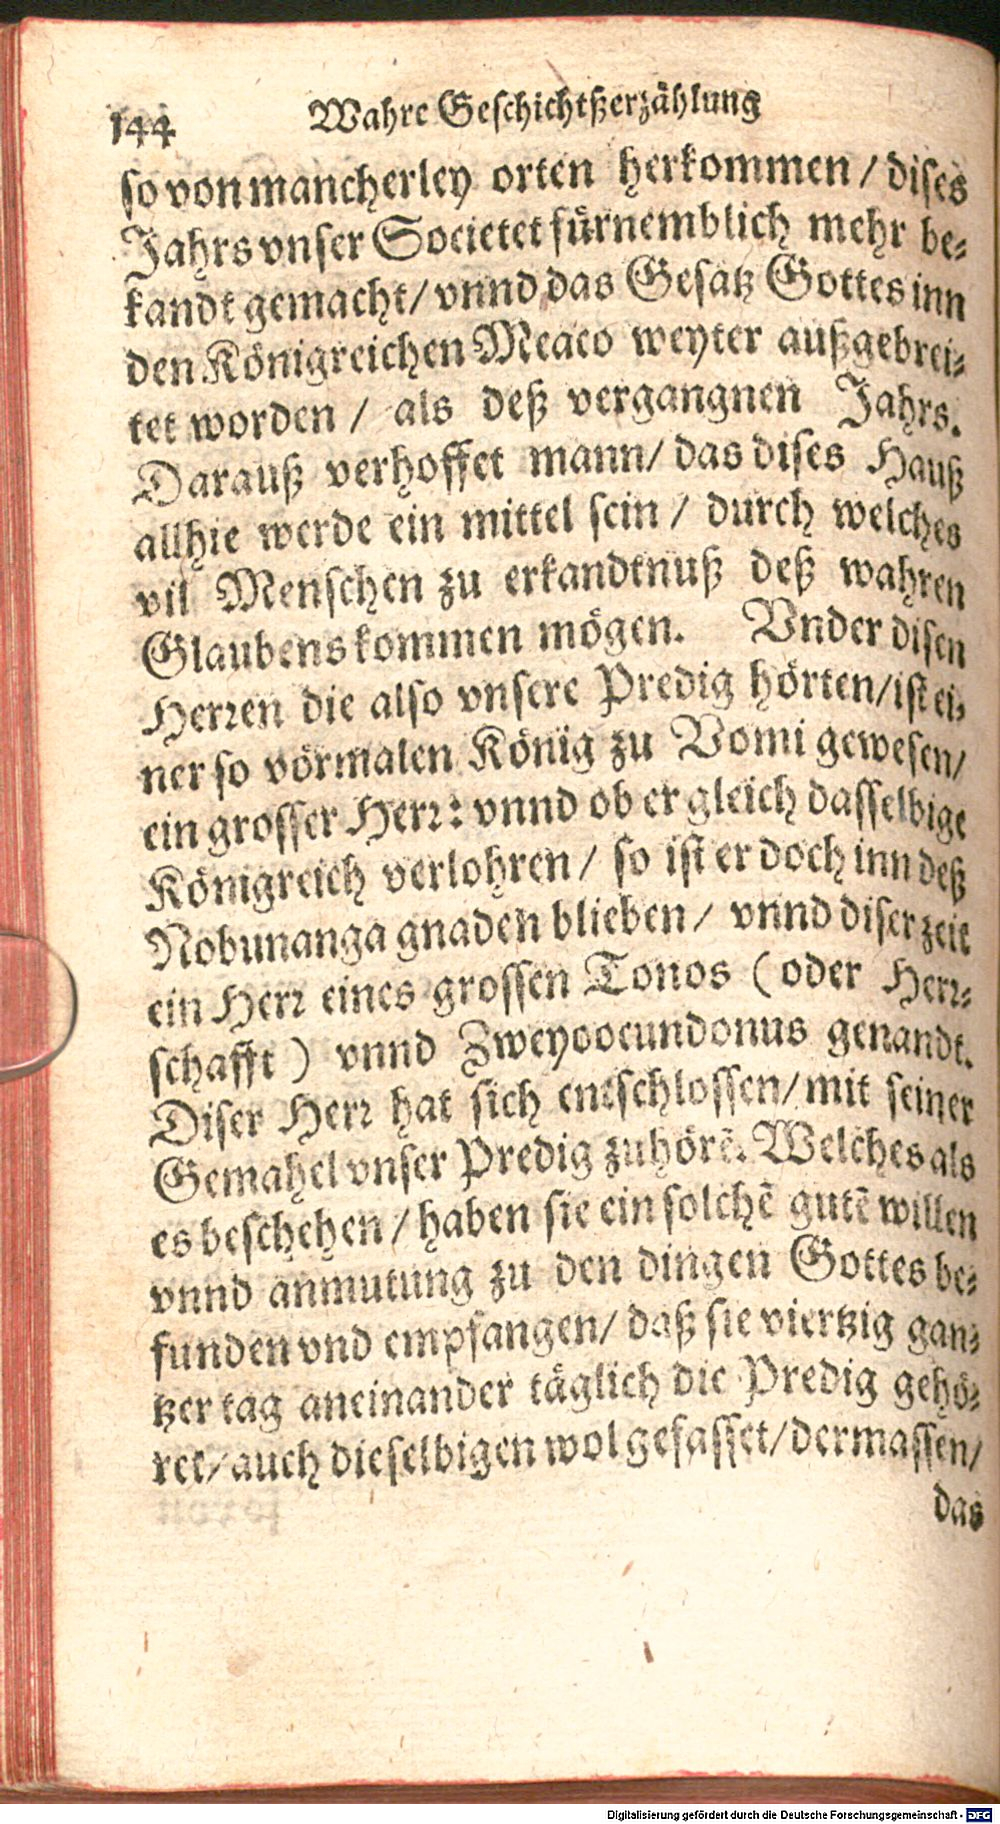 144 Wahre Geschichtßerzählung
so von mancherley orten herkommen / dises
Jahrs vnser Societet fürnemblich mehr be-
kandt gemacht / vnnd das Gesatz Gottes inn
den Königreichen Meaco weyter außgebrei-
tet worden / als deß vergangnen Jahrs.
Darauß verhoffet mann / das dises Hauß
allhie werde ein mittel sein / durch welches
vil Menschen zu erkandtnuß deß wahren
Glaubens kommen mögen. Vnder disen
Herren die also vnsere Predig hörten / ist ei-
ner so vormalen König zu Vomi gewesen /
ein grosser Herr: vnnd ob er gleich dasselbige
Königreich verlohren / so ist er doch inn deß
Nobunanga gnaden blieben / vnnd diser zeit
ein Herr eines grossen Tonos (oder Herr-
schafft) vnnd Zweyoocundonus genandt.
Diser Herr hat sich entschlossen / mit seiner
Gemahel vnser Predig zuhörē. Welches als
es beschehen / haben sie ein solchē gutē willen
vnnd anmutung zu den dingen Gottes be-
funden vnd empfangen / daß sie viertzig gan-
tzer tag aneinander täglich die Predig gehö-
ret / auch dieselbigen wol gefasset / dermassen /
das
Digitalisierung gefördert durch die Deutsche Forschungsgemeinschaft - DFG